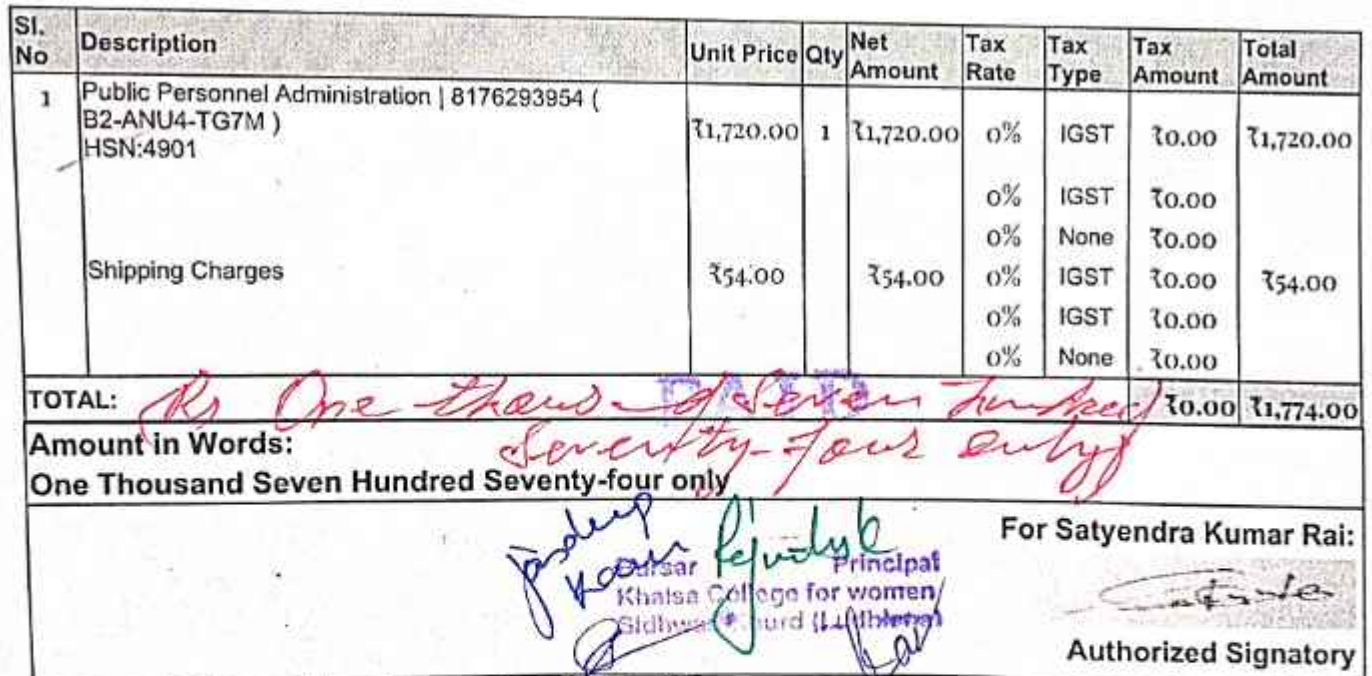 Sl. No Description Unit Price Qty Net Amount Tax Rate Tax Type Tax Amount Total Amount
1 Public Personnel Administration | 8176293954 (
B2-ANU4-TG7M )
HSN:4901
₹1,720.00 1 ₹1,720.00 0% IGST ₹0.00 ₹1,720.00
0% IGST ₹0.00
0% None ₹0.00
Shipping Charges ₹54.00 ₹54.00 0% IGST ₹0.00 ₹54.00
0% IGST ₹0.00
0% None ₹0.00
TOTAL: ₹0.00 ₹1,774.00
Rs One thousand Seven hundred
Seventy-four only
PAID
Amount in Words:
One Thousand Seven Hundred Seventy-four only
For Satyendra Kumar Rai:
Jasdeep
Kaur
Bursar Principal
Khalsa College for women
Sidhwan Khurd (Ludhiana)
Authorized Signatory